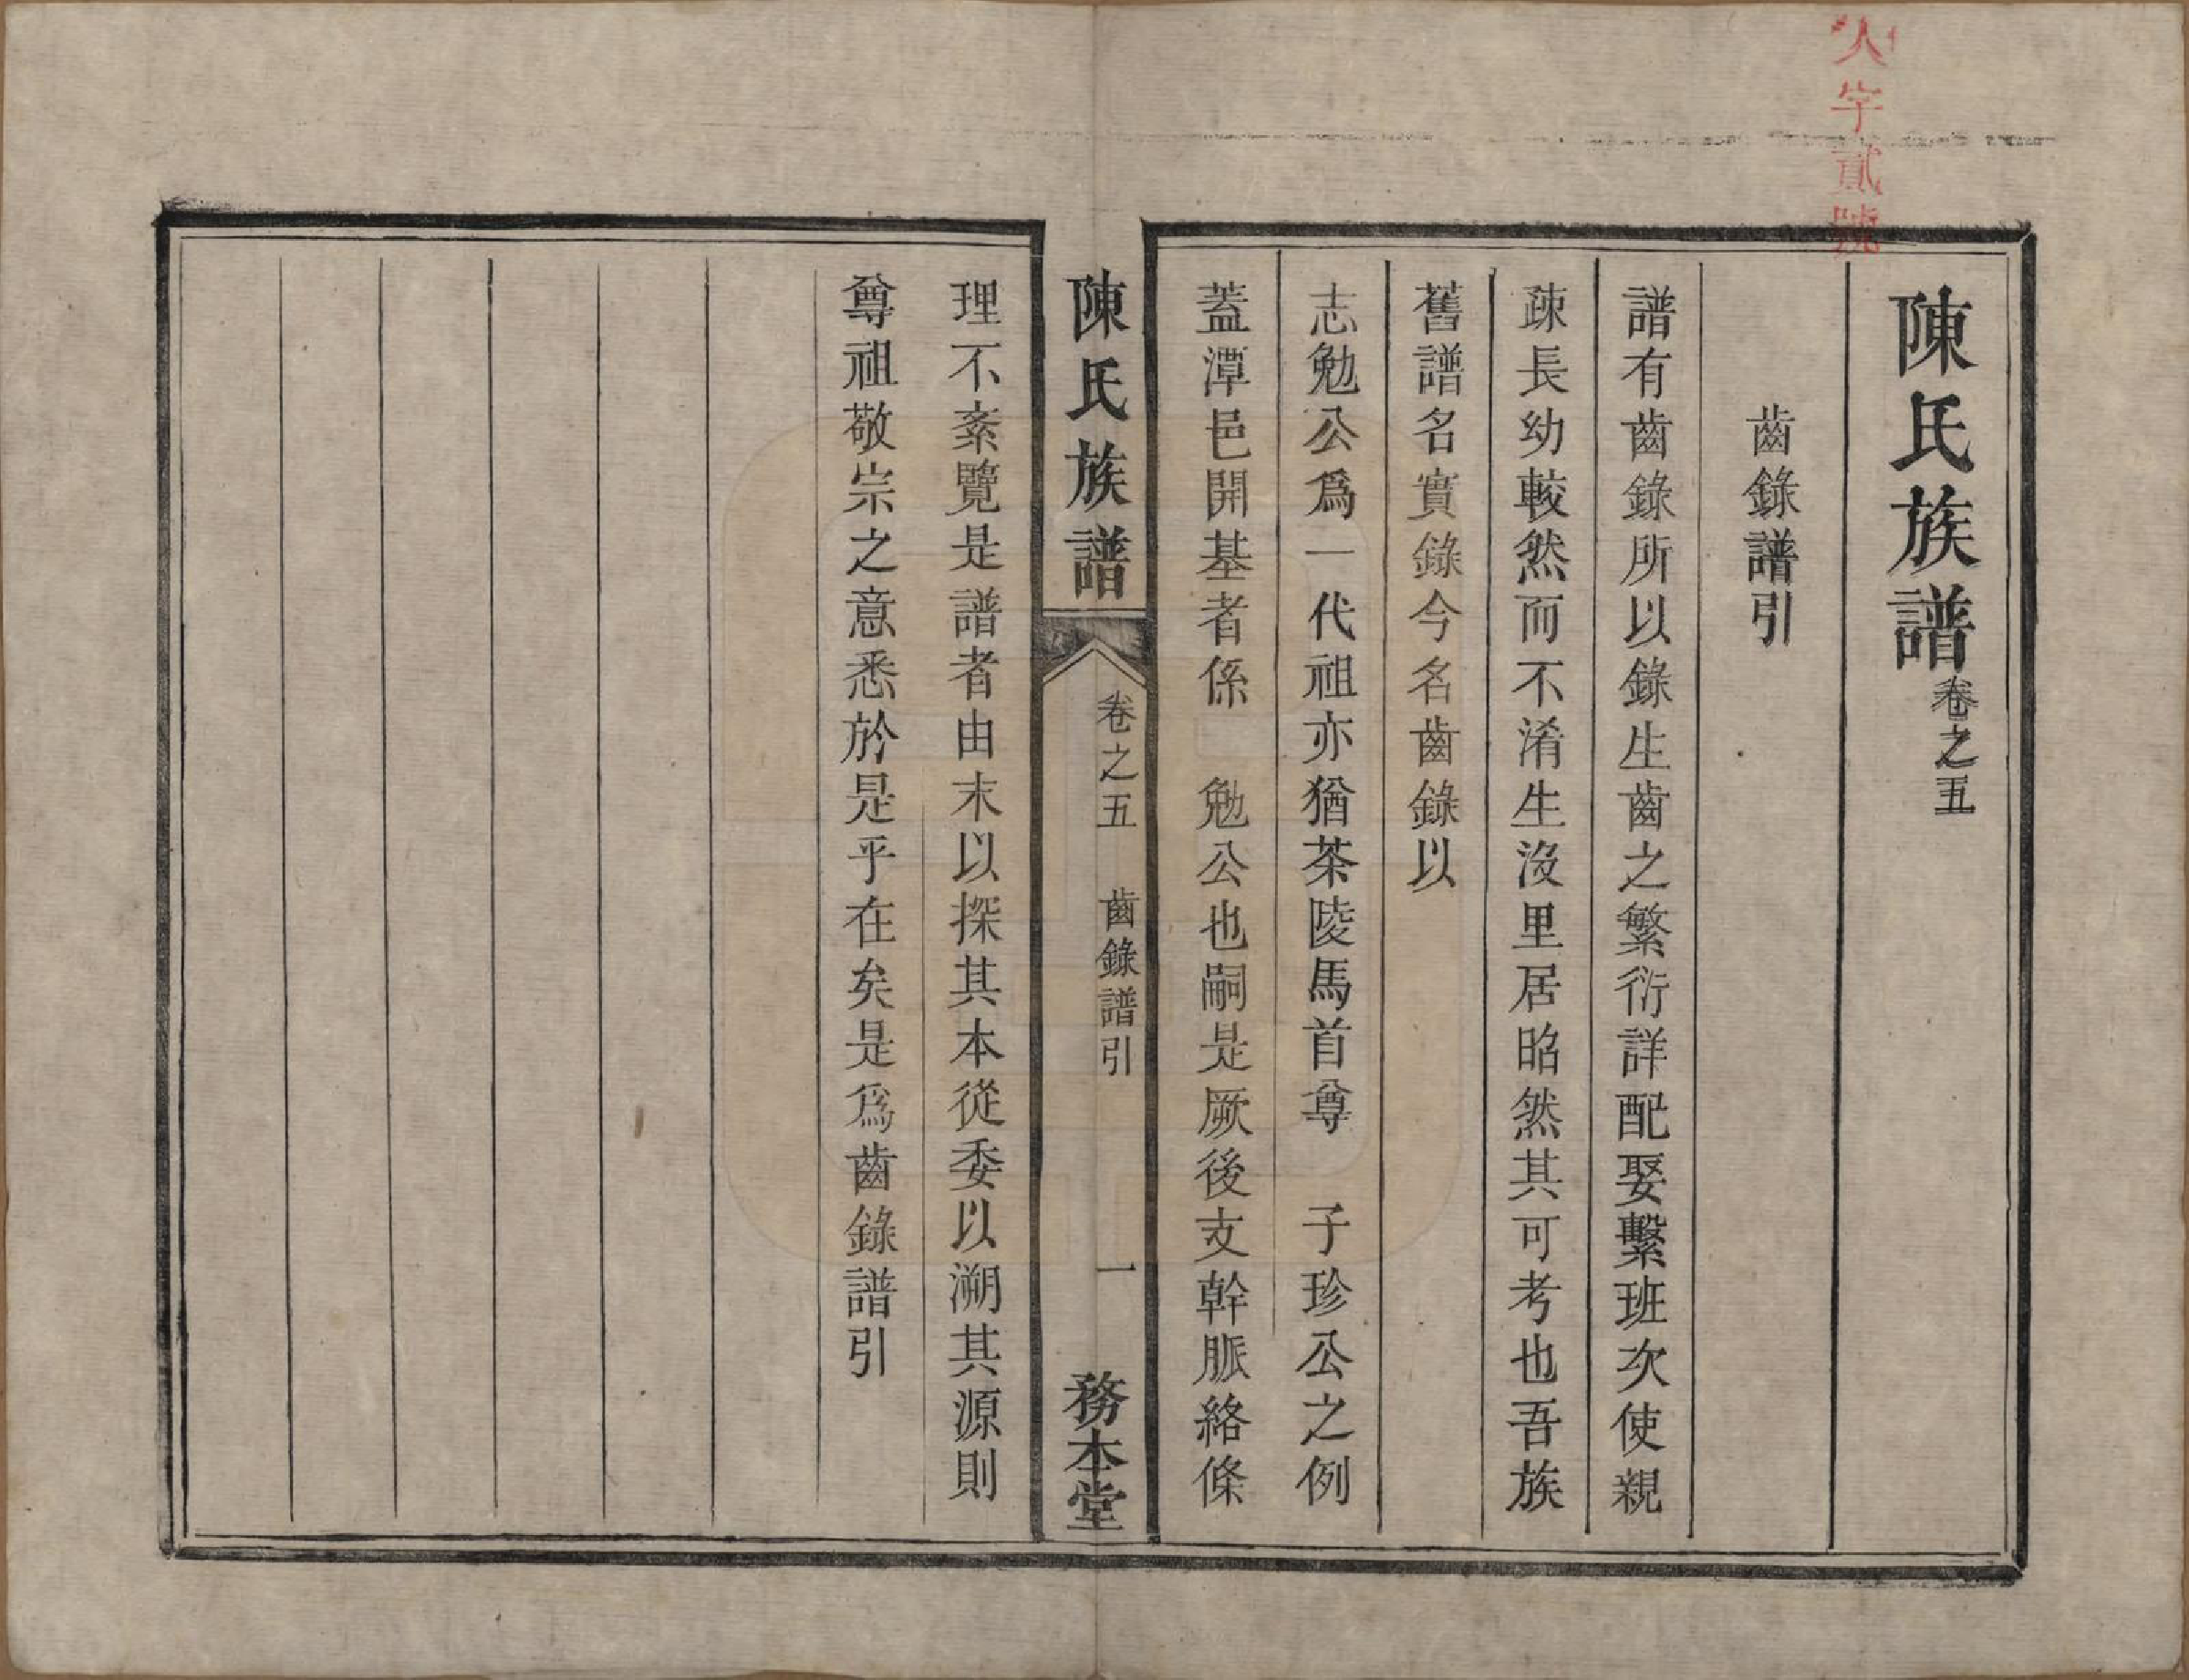 人字貳號
陳氏族譜卷之五
齒錄譜引
譜有齒錄所以錄生齒之繁衍詳配娶繫班次使親
疎長幼較然而不淆生沒里居昭然其可考也吾族
舊譜名實錄今名齒錄以
志勉公爲一代祖亦猶茶陵馬首尊 子珍公之例
蓋潭邑開基者係 勉公也嗣是厥後支幹脈絡條
陳氏族譜 卷之五 齒錄譜引 一 務本堂
理不紊覽是譜者由末以探其本從委以溯其源則
尊祖敬宗之意悉於是乎在矣是爲齒錄譜引